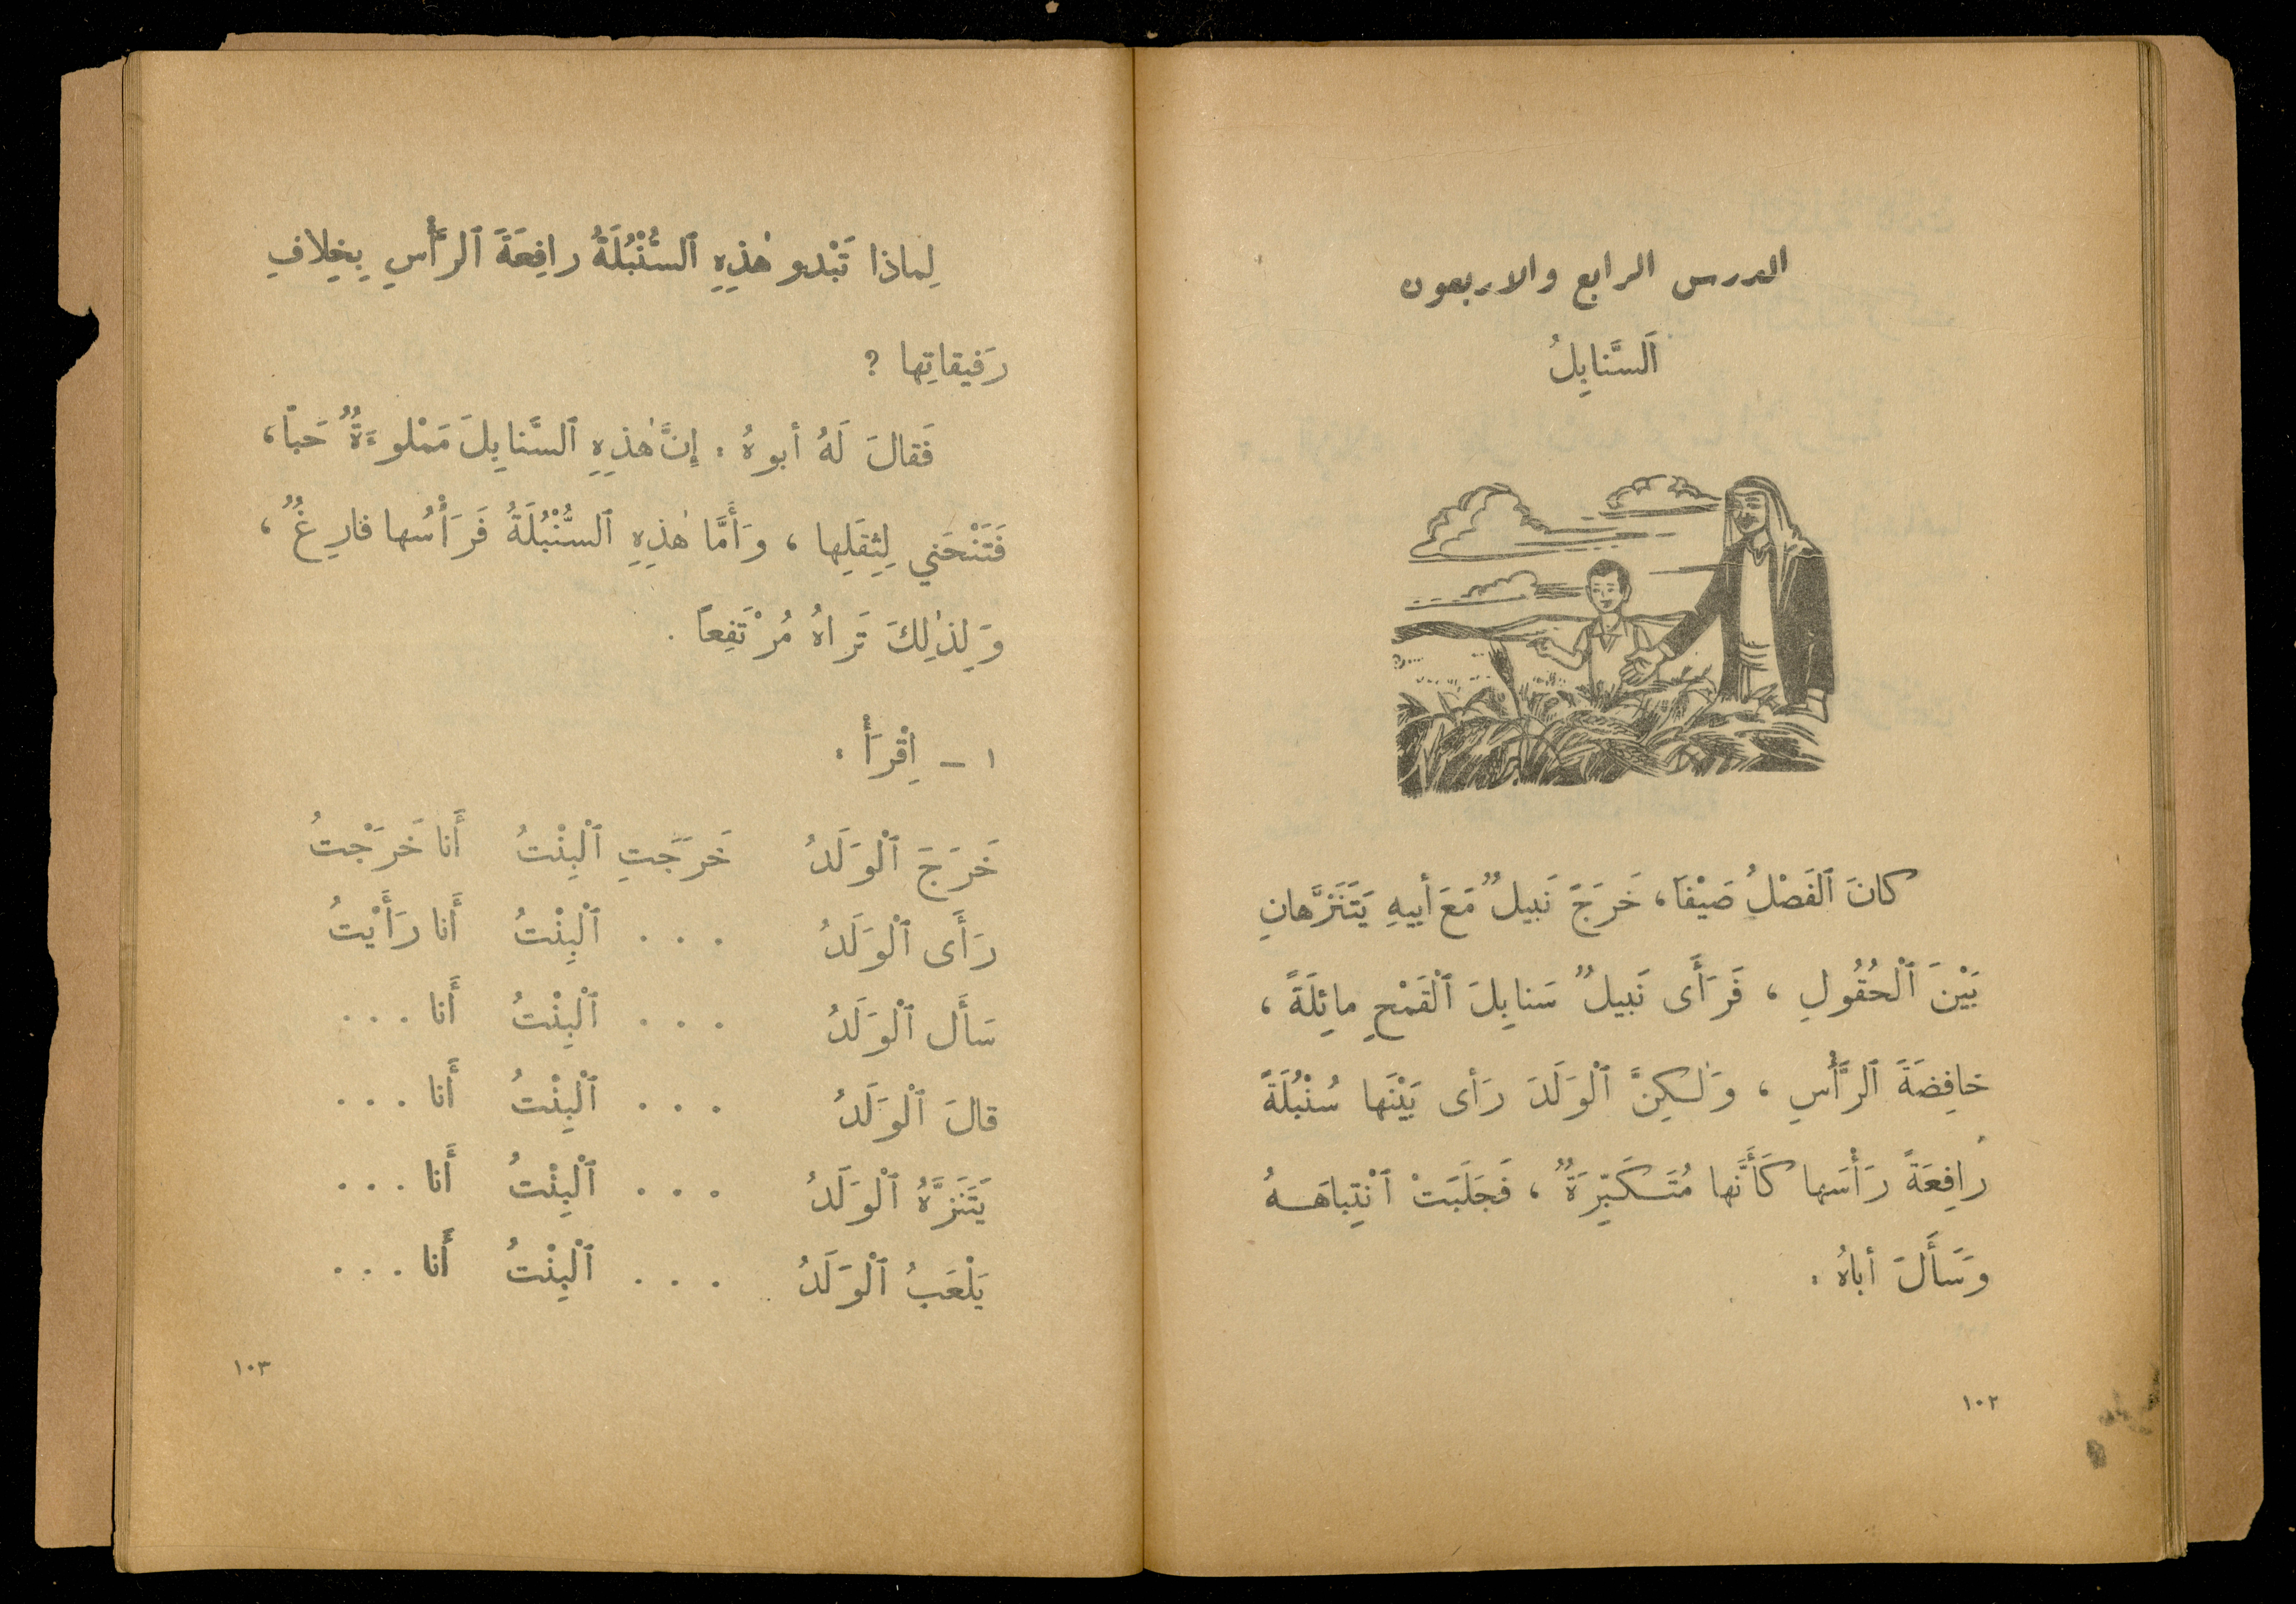 الدرس الرابع والاربعون
اَلسَّنابِلُ
كانَ ٱلفَصْلُ صَيْفاً، خَرَجَ نَبيلٌ مَعَ أَبيهِ يَتَنَزَّهانِ
بَيْنَ ٱلْحُقُولِ ، فَرَأَى نَبيلٌ سَنابِلَ ٱلْقَمْحِ مائِلَةً ،
خافِضَةَ ٱلرَّأْسِ ، وَلٰكِنَّ ٱلْوَلَدَ رَأى بَيْنَها سُنْبُلَةً
رافِعَةً رَأْسَها كَأَنَّها مُتَكَبِّرَةٌ ، فَجَلَبَتْ ٱنْتِباهَهُ
وَسَأَلَ أباهُ :
١٠٢
لِماذا تَبْدو هٰذِهِ ٱلسُّنْبُلَةُ رافِعَةَ ٱلرَّأْسِ بِخِلافِ
رَفيقاتِها ?
فَقالَ لَهُ أبوهُ : إِنَّ هٰذِهِ ٱلسَّنابِلَ مَمْلوءَةٌ حَباً،
فَتَنْحَني لِثِقَلِها ، وَأَمَّا هٰذِهِ ٱلسُّنْبُلَةُ فَرَأْسُها فارِغٌ ،
وَلِذٰلِكَ تَراهُ مُرْتَفِعاً .
١ – اِقْرَأْ :
خَرَجَ ٱلْوَلَدُ خَرَجَتِ ٱلْبِنْتُ أَنا خَرَجْتُ
رَأَى ٱلْوَلَدُ . . . ٱلْبِنْتُ أَنا رَأَيْتُ
سَأَل ٱلْوَلَدُ . . . ٱلْبِنْتُ أَنا . . .
قالَ ٱلْوَلَدُ . . . ٱلْبِنْتُ أَنا . . .
يَتَنَزَّهُ ٱلْوَلَدُ . . . ٱلْبِنْتُ أَنا . . .
يَلْعَبُ ٱلْوَلَدُ . . . ٱلْبِنْتُ أَنا . . .
١٠٣